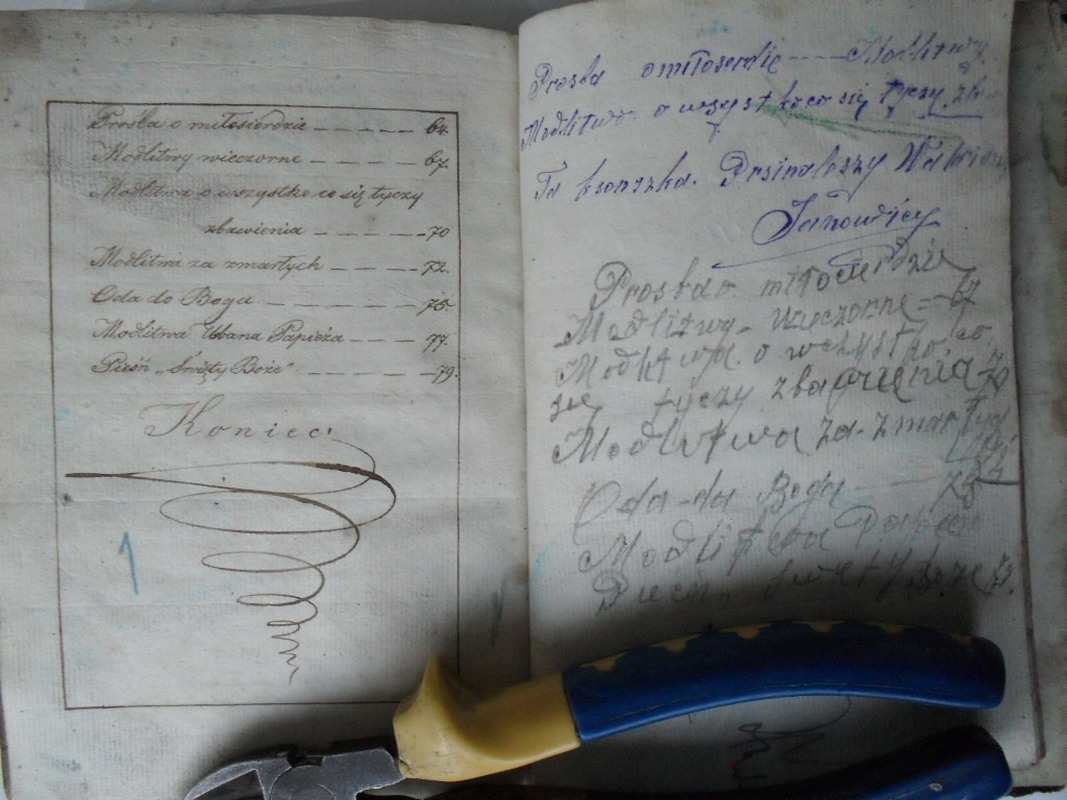 Prośba o miłosierdzie — — — — 64.
Modlitwy wieczorne — — — — 67.
Modlitwa o wszystko co się tyczy
zbawienia — — — — 70
Modlitwa za zmarłych — — — — 72.
Oda do Boga — — — — — 75.
Modlitwa Urbana Papieża — — — 77.
Pieśń „Święty Boże" — — — — 79.
Koniec.
1
Prosba omiłoserdie ---- Modlitwy
Modlitwa o wszystko co się tyczy zb
Ta ksonszka. Prsinaleszy
Janowicy
Prosba o miłocierdzie
Modlitwy - wieczorne - 67
Modlitwa o wszystko co
się tyczy zbawienia 70
Modlitwa za-zmarłych
Oda-da Boga — 75
Modlitwa
Piecń „ Swęty Boze 79.